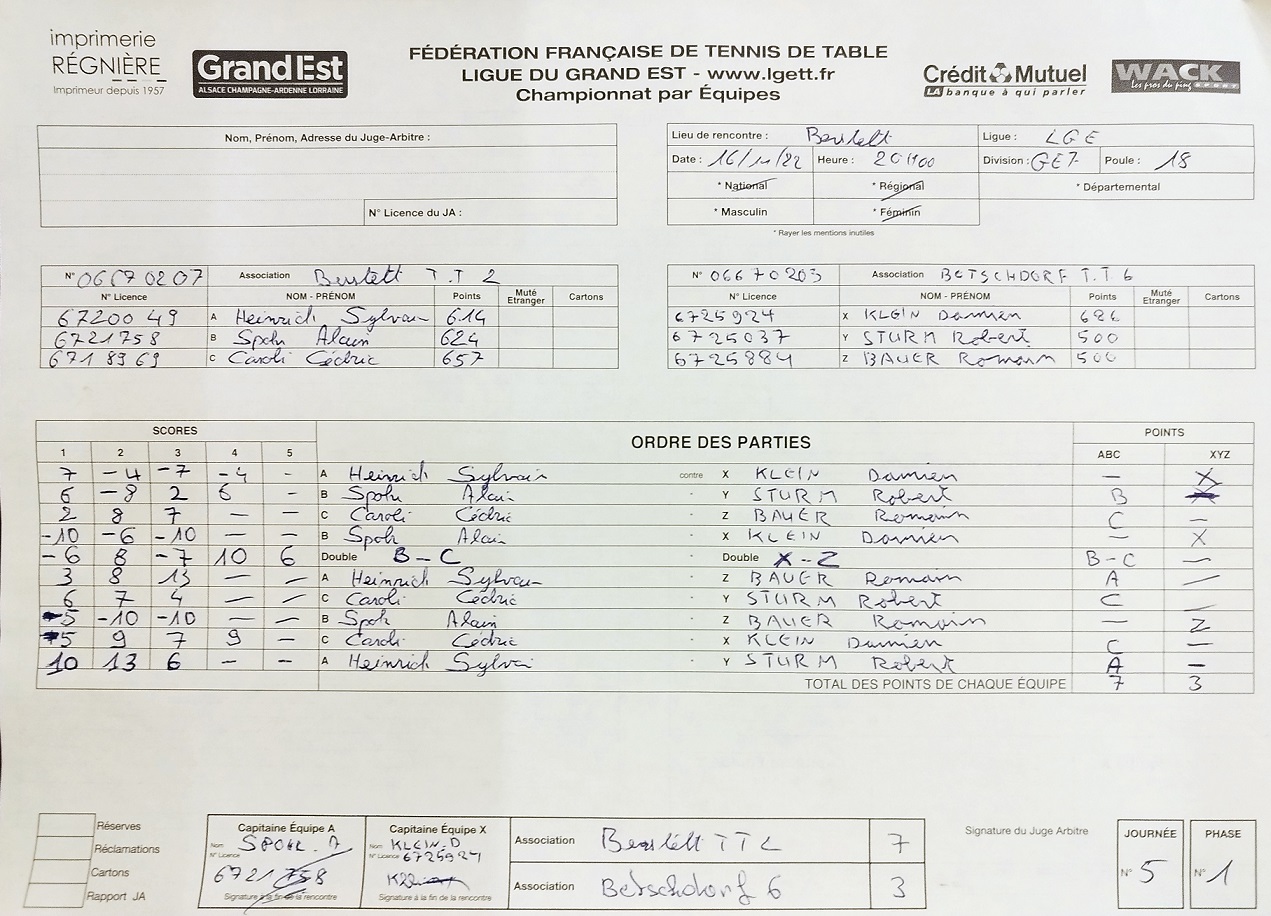 imprimerie
RÉGNIÈRE
Imprimeur depuis 1957
GrandEst
ALSACE CHAMPAGNE-ARDENNE LORRAINE
FÉDÉRATION FRANÇAISE DE TENNIS DE TABLE
LIGUE DU GRAND EST - www.lgett.fr
Championnat par Équipes
Crédit Mutuel
LA banque à qui parler
WACK
Les pros du ping SPORT
Nom, Prénom, Adresse du Juge-Arbitre :
N° Licence du JA :
Lieu de rencontre : Berstett Ligue : LGE
Date : 16/11/22 Heure : 20H00 Division : GE7 Poule : 18
* National * Régional * Départemental
* Masculin * Féminin
* Rayer les mentions inutiles
N° 06670207 Association Berstett T.T 2
N° Licence NOM - PRÉNOM Points Muté Etranger Cartons
6720049 A Heinrich Sylvain 614
6721758 B Spohr Alain 624
6718969 C Caroli Cédric 657
N° 06670203 Association BETSCHDORF T.T 6
N° Licence NOM - PRÉNOM Points Muté Etranger Cartons
6725924 X KLEIN Damien 686
6725037 Y STURM Robert 500
6725884 Z BAUER Romain 500
SCORES ORDRE DES PARTIES POINTS
1 2 3 4 5 ABC XYZ
7 -4 -7 -4 - A Heinrich Sylvain contre X KLEIN Damien — X
6 -8 2 6 - B Spohr Alain - Y STURM Robert B
2 8 7 — — C Caroli Cédric - Z BAUER Romain C —
-10 -6 -10 — — B Spohr Alain - X KLEIN Damien — X
-6 8 -7 10 6 Double B-C Double X-Z B-C —
3 8 13 — — A Heinrich Sylvain - Z BAUER Romain A —
6 7 4 — — C Caroli Cédric - Y STURM Robert C —
-5 -10 -10 — — B Spohr Alain - Z BAUER Romain — Z
5 9 7 9 - C Caroli Cédric - X KLEIN Damien C —
10 13 6 — — A Heinrich Sylvai - Y STURM Robert A —
TOTAL DES POINTS DE CHAQUE ÉQUIPE 7 3
Réserves
Réclamations
Cartons
Rapport JA
Capitaine Équipe A
Nom SPOHR. A
N° Licence
6721758
Signature à la fin de la rencontre
Capitaine Équipe X
Nom KLEIN.D
N° Licence 6725924
Signature à la fin de la rencontre
Association Berstett TT 2 7
Association Betschdorf 6 3
Signature du Juge Arbitre
JOURNÉE
N° 5
PHASE
N° 1